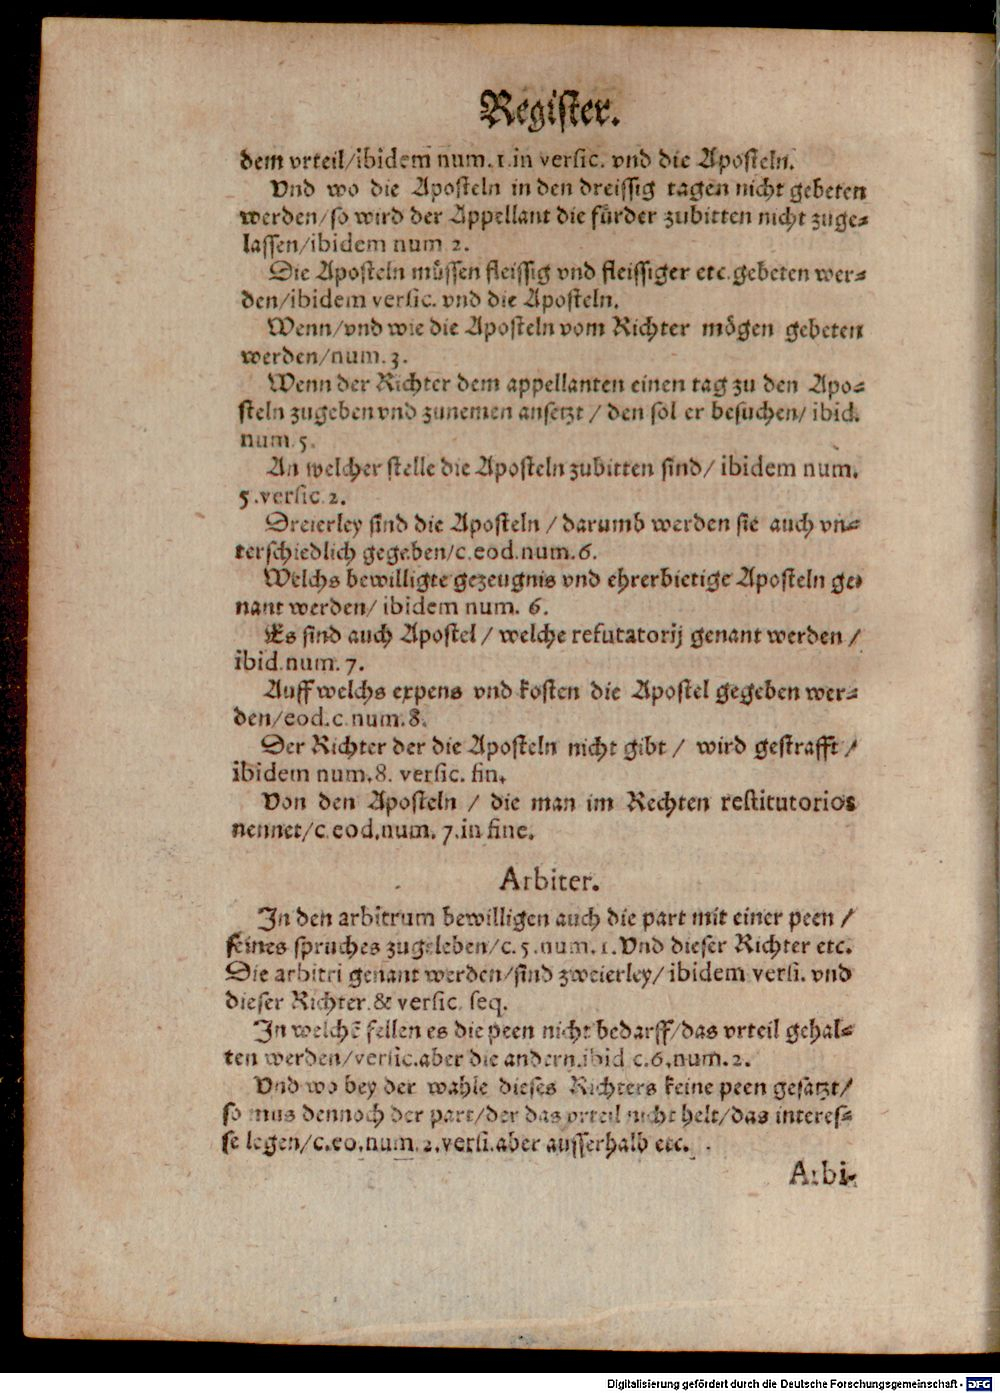 Register.
dem vrteil/ibidem num. 1. in versic. vnd die Aposteln.
Vnd wo die Aposteln in den dreissig tagen nicht gebeten
werden/so wird der Appellant die fürder zubitten nicht zuge=
lassen/ibidem num 2.
Die Aposteln müssen fleissig vnd fleissiger etc. gebeten wer=
den/ibidem versic. vnd die Aposteln.
Wenn/vnd wie die Aposteln vom Richter mögen gebeten
werden/num. 3.
Wenn der Richter dem appellanten einen tag zu den Apo=
steln zugeben vnd zunemen ansetzt / den sol er besuchen/ ibid.
num 5.
An welcher stelle die Aposteln zubitten sind/ ibidem num.
5. versic. 2.
Dreierley sind die Aposteln / darumb werden sie auch vn=
terschiedlich gegeben/c. eod. num. 6.
Welchs bewilligte gezeugnis vnd ehrerbietige Aposteln ge=
nant werden/ ibidem num. 6.
Es sind auch Apostel / welche refutatorij genant werden /
ibid. num. 7.
Auff welchs expens vnd kosten die Apostel gegeben wer=
den/eod. c. num. 8.
Der Richter der die Aposteln nicht gibt / wird gestrafft /
ibidem num. 8. versic. fin.
Von den Aposteln / die man im Rechten restitutorios
nennet/c. eod. num. 7. in fine.
Arbiter.
In den arbitrum bewilligen auch die part mit einer peen /
seines spruches zugeleben/c. 5. num. 1. Vnd dieser Richter etc.
Die arbitri genant werden/sind zweierley/ ibidem versi. vnd
dieser Richter. & versic. seq.
In welchẽ fellen es die peen nicht bedarff/das vrteil gehal=
ten werden/versic. aber die andern. ibid c. 6. num. 2.
Vnd wo bey der wahle dieses Richters keine peen gesatzt/
so mus dennoch der part/der das vrteil nicht helt/das interes=
se legen/c. eo. num. 2. versi. aber ausserhalb etc.
Arbi=
Digitalisierung gefördert durch die Deutsche Forschungsgemeinschaft - DFG